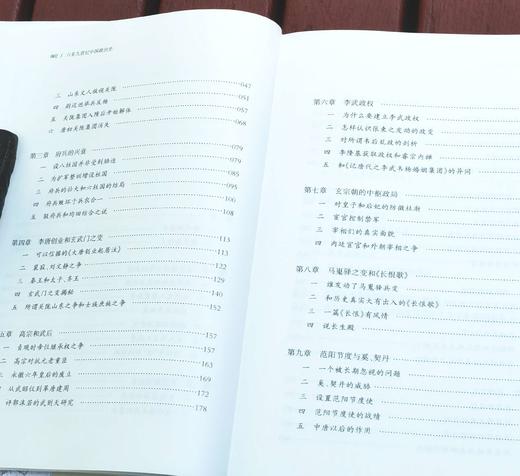 六至九世纪中国政治史
三 山东文人欲倾关陇 047
四 尉迟迥举兵反杨 051
五 关陇集团入隋后开始解体 057
六 唐初关陇集团消失 068
第三章 府兵的兴衰 079
一 设八柱国并尽受到排迮 079
二 为扩军整训增设柱国 085
三 府兵的壮大和六柱国的结局 091
四 府兵毁坏于兵农合一 100
五 驳府兵和均田结合之说 108
第四章 李唐创业和玄武门之变 113
一 可以信据的《大唐创业起居注》 113
二 裴寂、刘文静之争 122
三 秦王和太子、齐王 129
四 玄武门之变揭秘 140
五 所谓关陇山东之争和士族庶族之争 152
五章 高宗和武后 157
贞观时帝位继承权之争 157
二 高宗对抗元老重臣 163
三 永徽六年皇后的废立 169
从武昭仪到革唐建周 172
评郭沫若的武则天研究 178
第六章 李武政权
一 为什么要建立李武政权
二 怎样认识张柬之发动的政变
三 对所谓韦后乱政的剖析
四 李隆基获取政权和睿宗内禅
五 和《记唐代之李武韦杨婚姻集团》的异同
第七章 玄宗朝的中枢政局
一 对皇子和后妃的防微杜渐
二 宦官控制禁军
三 宰相们的真实面貌
四 内廷宦官和外朝宰相之争
第八章 马嵬驿之变和《长恨歌》
一 谁发动了马嵬驿兵变
二 和历史真实大有出入的《长恨歌》
三 一篇《长恨》有风情
四 说长生殿
第九章 范阳节度与奚、契丹
一 一个被长期忽视的问题
二 奚、契丹的威胁
三 设置范阳节度使
四 范阳节度使的战绩
五 中唐以后的作用